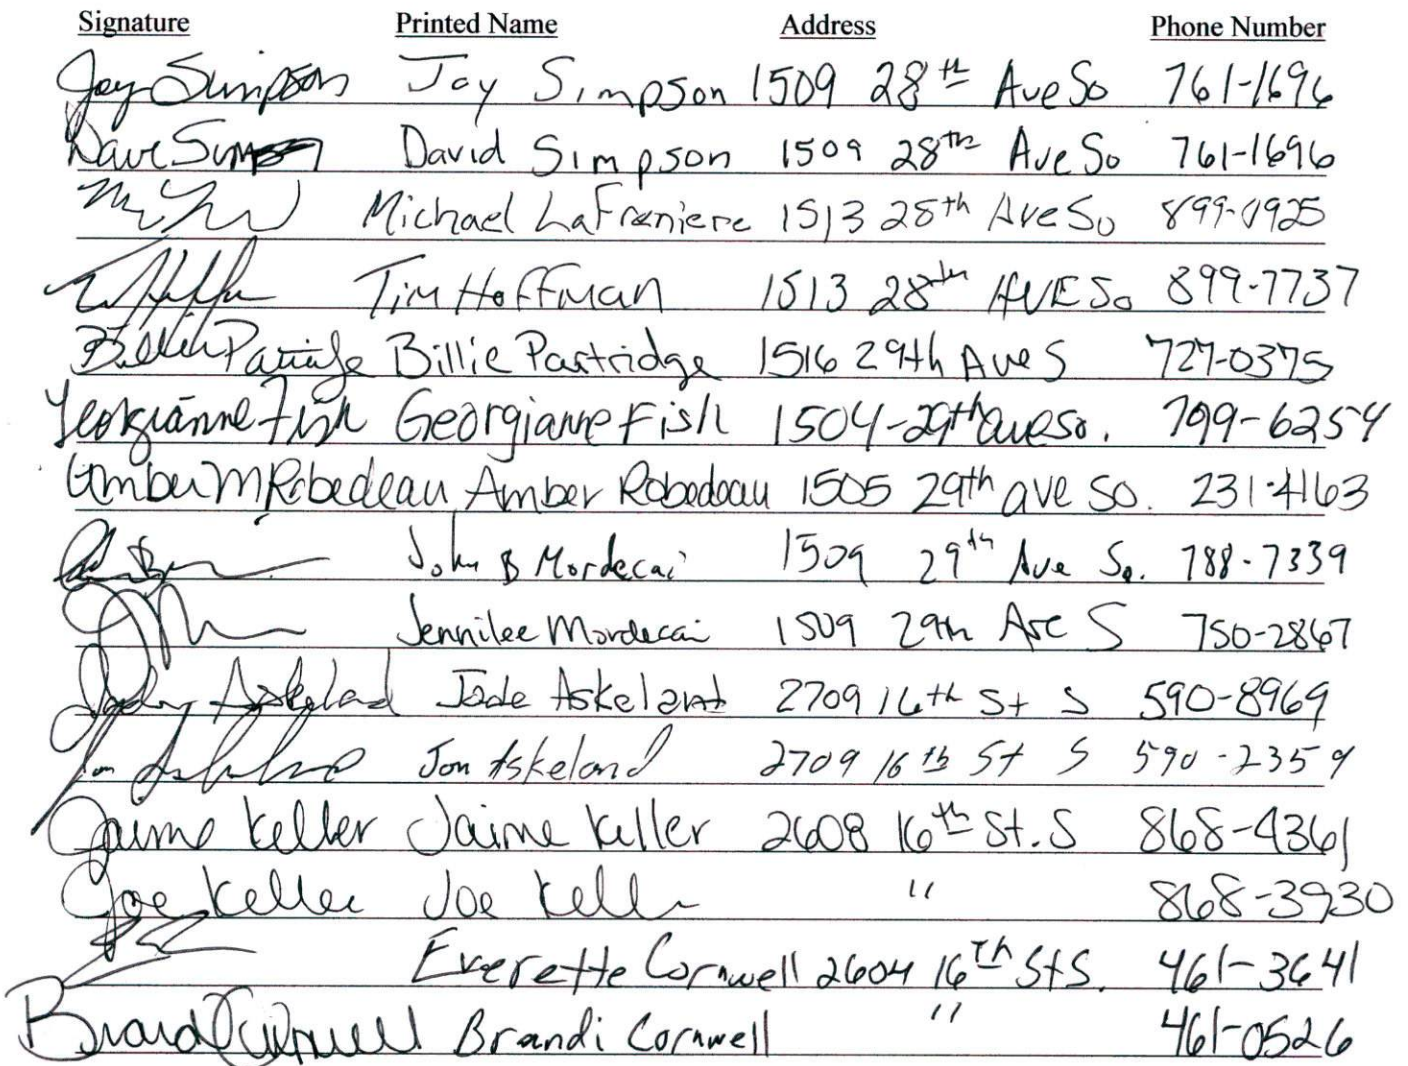 Signature Printed Name Address Phone Number
Joy Simpson Joy Simpson 1509 28th Ave So 761-1696
Dave Simpson David Simpson 1509 28th Ave So 761-1696
Michael LaFreniere 1513 28th Ave So 899-0925
Tim Hoffman 1513 28th AVE So 899-7737
Billie Partridge Billie Partridge 1516 29th Ave S 727-0375
Georgianne Fish Georgianne Fish 1504-29th ave so. 799-6254
Amber M Robedeau Amber Robedeau 1505 29th ave so. 231-4163
John B Mordecai 1509 29th Ave So. 788-7339
Jennilee Mordecai 1509 29th Ave S 750-2867
Askeland Jade Askeland 2709 16th St S 590-8969
Jon Askeland Jon Askeland 2709 16th St S 590-2359
Jaime Keller Jaime Keller 2608 16th St. S 868-4361
Joe Keller Joe Keller " 868-3930
Everette Cornwell 2604 16th St S. 461-3641
Brandi Cornwell Brandi Cornwell " 461-0526